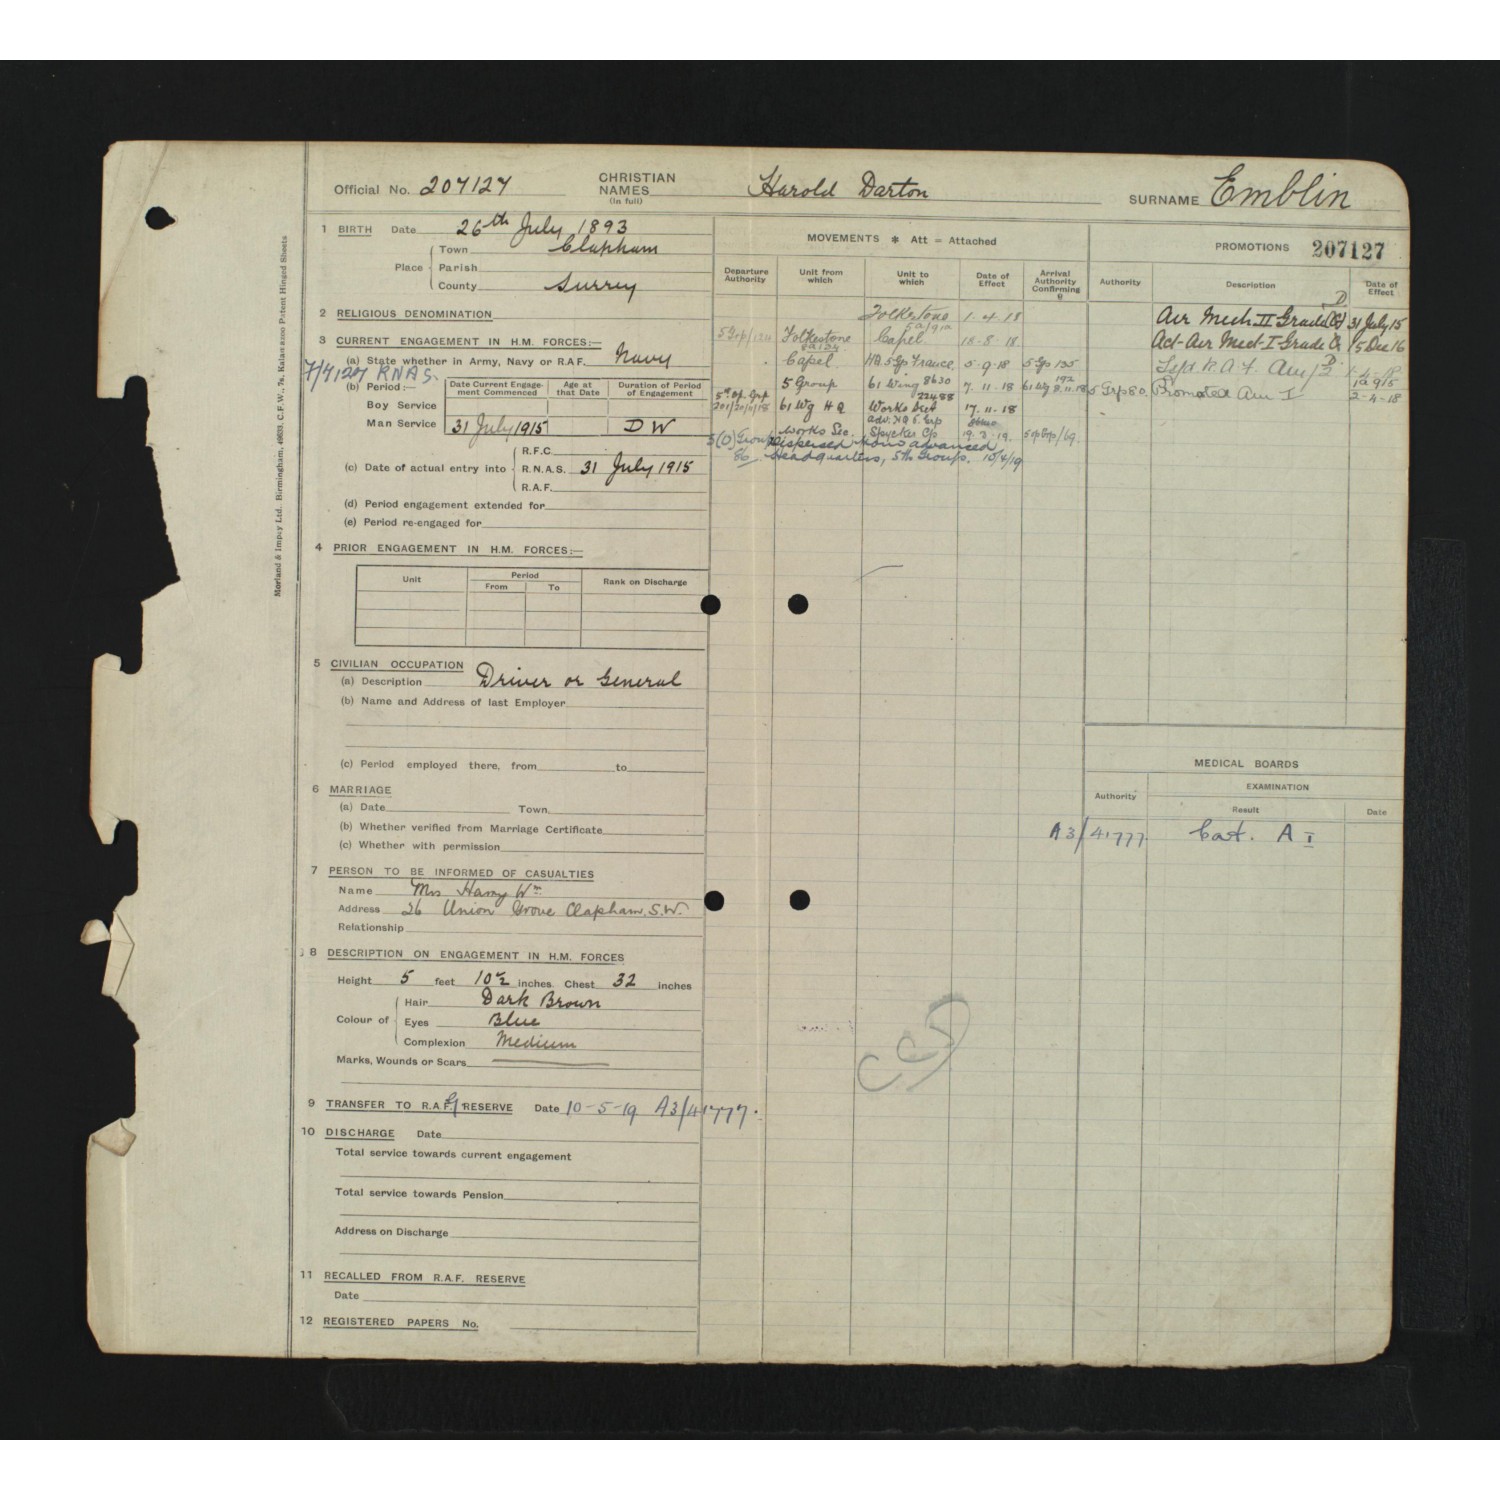 Official No. 207127
CHRISTIAN NAMES (In full) Harold Darton
SURNAME Emblin
1 BIRTH Date 26th July 1893
Place Town Clapham
Parish
County Surrey
2 RELIGIOUS DENOMINATION
3 CURRENT ENGAGEMENT IN H.M. FORCES:—
(a) State whether in Army, Navy or R.A.F. Navy
RNAS.
(b) Period:—
Date Current Engagement Commenced Age at that Date Duration of Period of Engagement
Boy Service
Man Service 31 July 1915 DW
(c) Date of actual entry into
R.F.C.
R.N.A.S. 31 July 1915
R.A.F.
(d) Period engagement extended for
(e) Period re-engaged for
4 PRIOR ENGAGEMENT IN H.M. FORCES:—
Unit Period Rank on Discharge
From To
5 CIVILIAN OCCUPATION
(a) Description Driver or General
(b) Name and Address of last Employer
(c) Period employed there, from to
6 MARRIAGE
(a) Date Town
(b) Whether verified from Marriage Certificate
(c) Whether with permission
7 PERSON TO BE INFORMED OF CASUALTIES
Name Mrs Harry Wm
Address 26 Union Grove Clapham, S.W.
Relationship
8 DESCRIPTION ON ENGAGEMENT IN H.M. FORCES
Height 5 feet 10½ inches Chest 32 inches
Colour of
Hair Dark Brown
Eyes Blue
Complexion Medium
Marks, Wounds or Scars
9 TRANSFER TO R.A.F. RESERVE Date 10-5-19 A3/41777.
10 DISCHARGE Date
Total service towards current engagement
Total service towards Pension
Address on Discharge
11 RECALLED FROM R.A.F. RESERVE
Date
12 REGISTERED PAPERS No.
MOVEMENTS * Att = Attached
Departure Authority Unit from which Unit to which Date of Effect Arrival Authority Confirming
Folkestone 1-4-18
Folkestone Capel 18-8-18
Capel HQ. 5 Gp France 5-9-18 5 Gp 135
5 Group 61 Wing 7.11.18 61 Wg
61 Wg HQ Works 17.11.18
Works Sec. 19.3.19.
Dispersed from advanced
Headquarters, 5th Group. 15/4/19
PROMOTIONS 207127
Authority Description Date of Effect
Air Mech II Grade 31 July 15
Act-Air Mech I Grade 15 Dec 16
R.A.F. 1-4-18
Promoted Am I 2-4-18
MEDICAL BOARDS
Authority EXAMINATION
Result Date
A3/41777 Cat. A I
Morland & Impey Ltd., Birmingham,
Patent Hinged Sheets